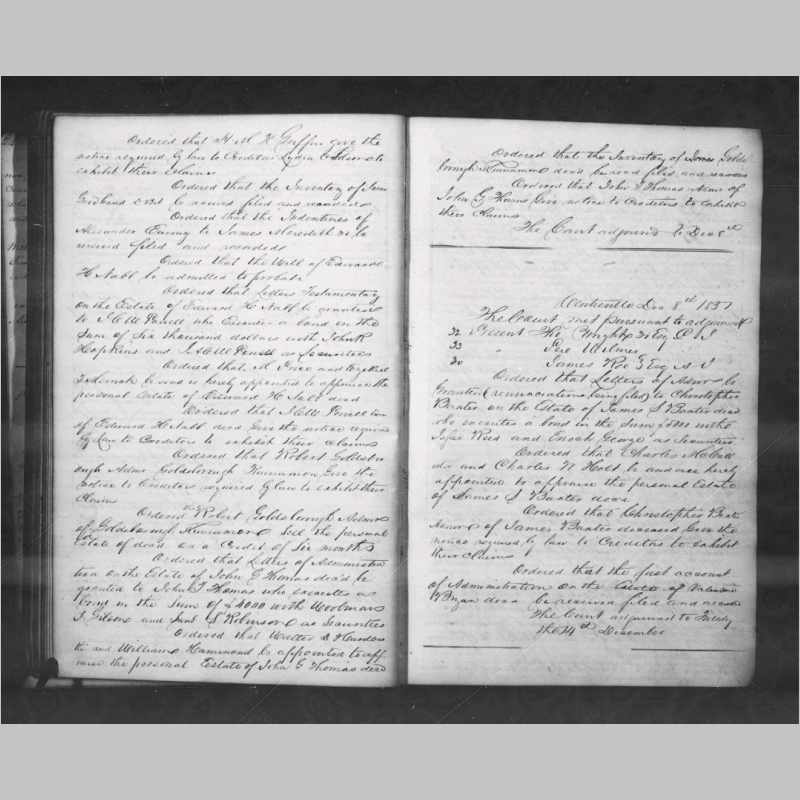 Ordered that H M K Griffin give the
notice required by law to Creditors
exhibit their Claims
Ordered that the Inventory of
be received filed and recorded
Ordered that the Indentures of
Alexander to James Meredith Jr be
received filed and recorded
Ordered that the Will of Edward
H Nabb be admitted to probate
Ordered that Letters Testamentary
on the Estate of Edward H Nabb be granted
to who Executes a bond in the
Sum of Six thousand dollars with John
Hopkins and as Securities
Ordered that Price and
be and is hereby appointed to appraise the
personal estate of Edward H Nabb decd
Ordered that
of Edward H Nabb decd Give the notice required
by law to Creditors to exhibit their claims
Ordered that Robert Goldsbo
rough Admr Goldsborough Kinnamon Give the
notice to Creditors required by law to exhibit their
Claims
Ordered that Robert Goldsborough Admr
of Goldsborough Kinnamon Sell the personal
Estate of decd on a Credit of Six months
Ordered that Letters of Administra
tion on the Estate of John G Thomas decd be
granted to John T Thomas who executes a
bond in the Sum of $4000 with Woolman
J. Gibson and S Robinson as Securities
Ordered that Walter
and William Hammond be appointed to app
raise the personal Estate of John G Thomas decd
Ordered that the Inventory of Golds
borough Kinnamon decd be recd filed and record
Ordered that John T Thomas Admr of
John G Thomas Give notice to Creditors to exhibit
their Claims
The Court adjourned to Dec 8th
Centreville Dec 8th 1837
The Court met pursuant to adjournmt
32 Present Tho Wright 3 of Tho C. J
33 " Wilmer
20 James Roe Esq A J
Ordered that Letters of Admr be
Granted (renunciations being filed) to Christopher
Baxter on the Estate of James S Baxter decd
who executes a bond in the Sum with
Reed and Enoch George as Securities
Ordered that Charles
and Charles N Holt be and are hereby
appointed to appraise the personal Estate
of James S Baxter decd
Ordered that Christopher Baxte
Admr of James Baxter deceased Give the
notice required by law to Creditors to exhibit
their Claims
Ordered that the first account
of Administration on the Estate of Valentine
Bryan decd be received filed and recorded
The Court adjourned to
the 14th December